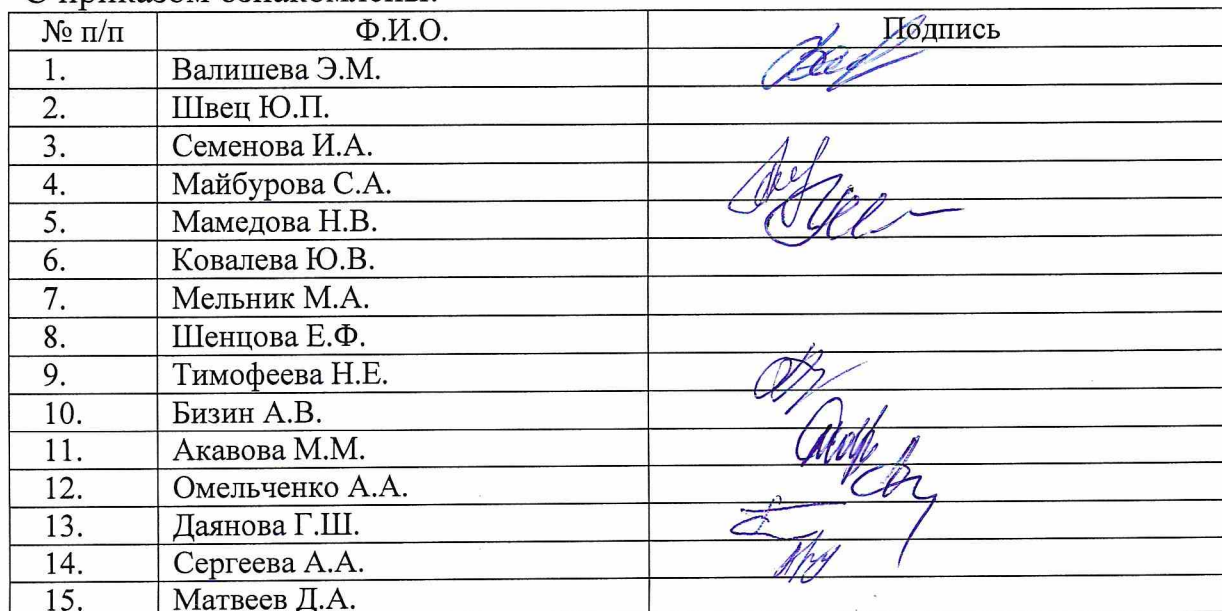 С приказом ознакомлены:
№ п/п Ф.И.О. Подпись
1. Валишева Э.М.
2. Швец Ю.П.
3. Семенова И.А.
4. Майбурова С.А.
5. Мамедова Н.В.
6. Ковалева Ю.В.
7. Мельник М.А.
8. Шенцова Е.Ф.
9. Тимофеева Н.Е.
10. Бизин А.В.
11. Акавова М.М.
12. Омельченко А.А.
13. Даянова Г.Ш.
14. Сергеева А.А.
15. Матвеев Д.А.